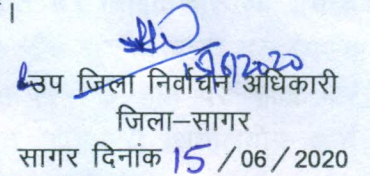 ।
15/6/2020
उप जिला निर्वाचन अधिकारी
जिला–सागर
सागर दिनांक 15 / 06 / 2020